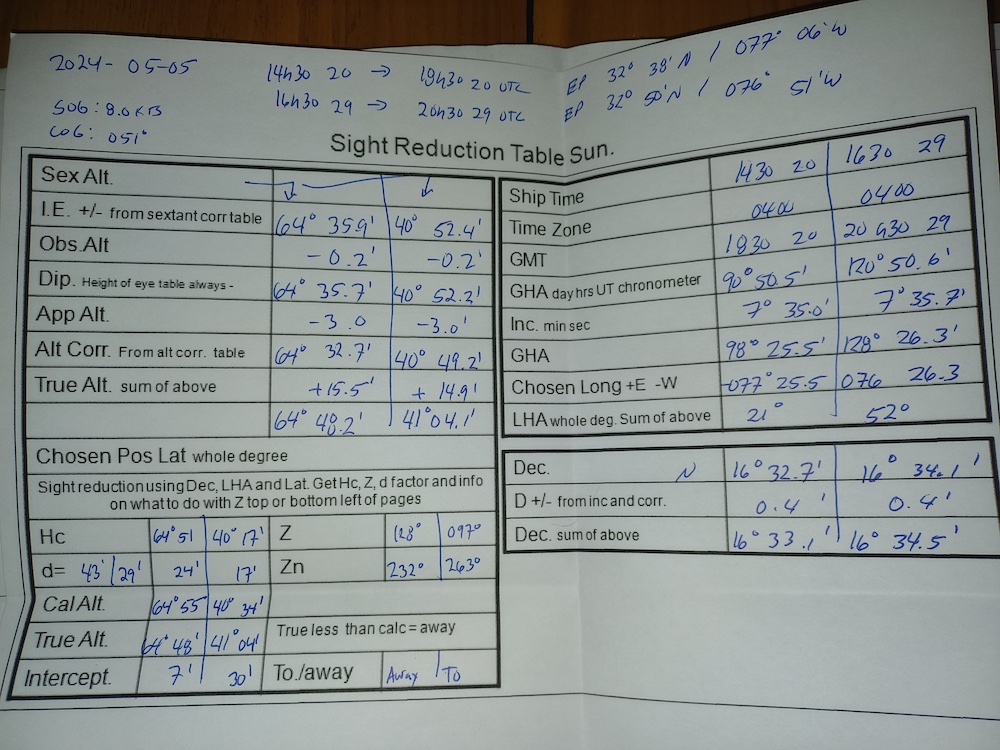 2024-05-05 14h30 20 → 18h30 20 UTC EP 32° 38'N / 077° 06'W
SOG: 8.0 KTS 16h30 29 → 20h30 29 UTC EP 32° 50'N / 076° 51'W
COG: 051°
Sight Reduction Table Sun.
Sex Alt.
I.E. +/- from sextant corr table 64° 35.9' 40° 52.4'
Obs.Alt -0.2' -0.2'
Dip. Height of eye table always - 64° 35.7' 40° 52.2'
App Alt. -3.0 -3.0'
Alt Corr. From alt corr. table 64° 32.7' 40° 49.2'
True Alt. sum of above +15.5' + 14.9'
64° 48.2' 41° 04.1'
Chosen Pos Lat whole degree
Sight reduction using Dec, LHA and Lat. Get Hc, Z, d factor and info
on what to do with Z top or bottom left of pages
Hc 64°51 40° 17' Z 128° 097°
d= 43' / 29' 24' 17' Zn 232° 263°
Cal Alt. 64°55' 40° 34'
True Alt. 64° 48' 41° 04' True less than calc = away
Intercept. 7' 30' To./away Away To
Ship Time 1430 20 1630 29
Time Zone 0400 0400
GMT 1830 20 20 h30 29
GHA day hrs UT chronometer 90° 50.5' 120° 50.6'
Inc. min sec 7° 35.0' 7° 35.7'
GHA 98° 25.5' 128° 26.3'
Chosen Long +E -W -077° 25.5 076 26.3
LHA whole deg. Sum of above 21° 52°
Dec. N 16° 32.7' 16° 34.1'
D +/- from inc and corr. 0.4' 0.4'
Dec. sum of above 16° 33.1' 16° 34.5'